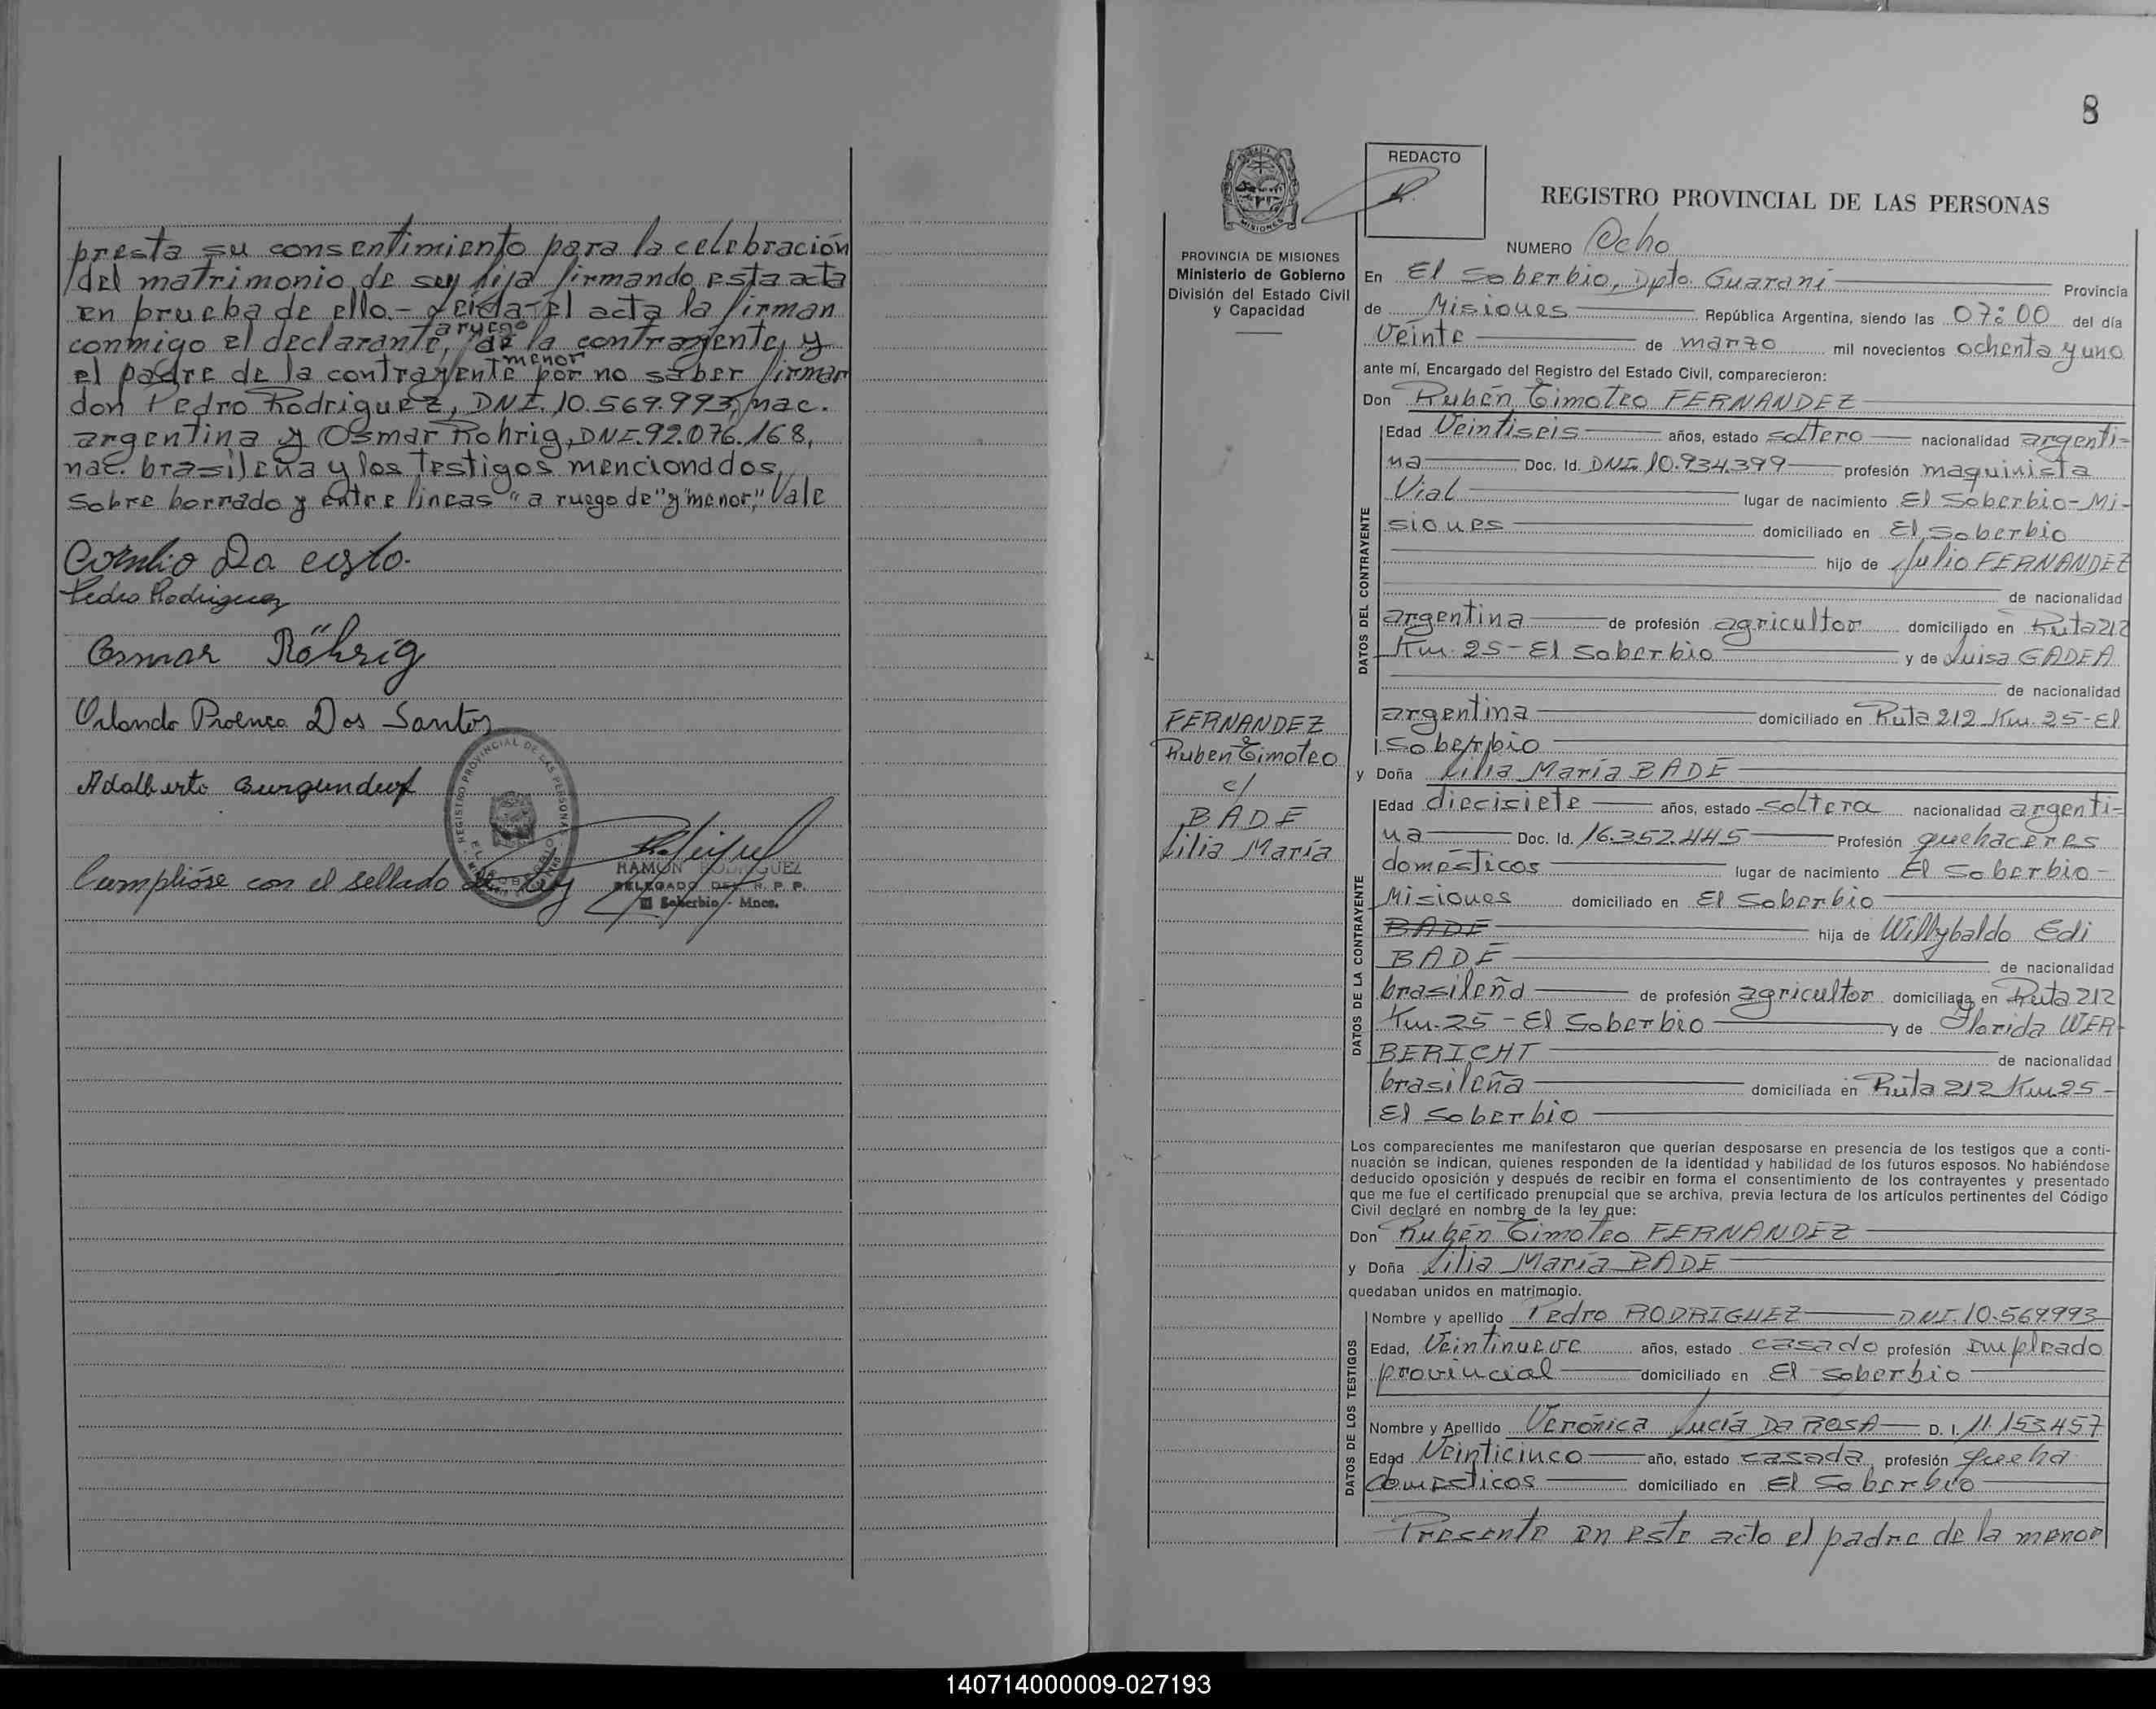 presta su consentimiento para la celebración
del matrimonio de su hija firmando esta acta
en prueba de ello.- Leida el acta la firman
a ruego
conmigo el declarante, de la contrayente y
menor
el padre de la contrayente por no saber firmar
don Pedro Rodriguez, DNI. 10.569.993, nac.
argentina y Osmar Rohrig, DNI. 92.076.168,
nac. brasileña y los testigos mencionados,
Sobre borrado y entre lineas "a ruego de" y "menor", Vale
Da
Pedro Rodriguez
Osmar Röhrig
Orlando Proença Dos Santos
Adalberto Burgundurf
REGISTRO PROVINCIAL DE LAS PERSONAS
Cumplióse con el sellado de ley
RAMON RODRIGUEZ
DELEGADO DEL R. P. P.
El Soberbio - Mnes.
8
REDACTO
MISIONES
REGISTRO PROVINCIAL DE LAS PERSONAS
PROVINCIA DE MISIONES
Ministerio de Gobierno
División del Estado Civil
y Capacidad
NUMERO Ocho
En El Soberbio, Dpto. Guaraní Provincia
de Misiones República Argentina, siendo las 07:00 del día
Veinte de marzo mil novecientos ochenta y uno
ante mí, Encargado del Registro del Estado Civil, comparecieron:
Don Rubén Timoteo FERNANDEZ
DATOS DEL CONTRAYENTE
Edad Veintiseis años, estado soltero nacionalidad argenti-
na Doc. Id. DNI. 10.934.399 profesión maquinista
Vial lugar de nacimiento El Soberbio-Mi-
siones domiciliado en El Soberbio
hijo de Julio FERNANDEZ
de nacionalidad
argentina de profesión agricultor domiciliado en Ruta 212
Km. 25-El Soberbio y de Luisa GADEA
de nacionalidad
argentina domiciliado en Ruta 212 Km. 25-El
Soberbio
FERNANDEZ
Ruben Timoteo
c/
BADE
Lilia María
y Doña Lilia María BADE
DATOS DE LA CONTRAYENTE
Edad diecisiete años, estado soltera nacionalidad argenti-
na Doc. Id. 16.352.445 Profesión quehaceres
domésticos lugar de nacimiento El Soberbio-
Misiones domiciliado en El Soberbio
BADE hija de Willybaldo Edi
BADE de nacionalidad
brasileña de profesión agricultor domiciliada en Ruta 212
Km. 25-El Soberbio y de Florida WER-
BERICHT de nacionalidad
brasileña domiciliada en Ruta 212 Km 25-
El Soberbio
Los comparecientes me manifestaron que querían desposarse en presencia de los testigos que a conti-
nuación se indican, quienes responden de la identidad y habilidad de los futuros esposos. No habiéndose
deducido oposición y después de recibir en forma el consentimiento de los contrayentes y presentado
que me fue el certificado prenupcial que se archiva, previa lectura de los artículos pertinentes del Código
Civil declaré en nombre de la ley que:
Don Rubén Timoteo FERNANDEZ
y Doña Lilia María BADE
quedaban unidos en matrimonio.
DATOS DE LOS TESTIGOS
Nombre y apellido Pedro RODRIGUEZ DNI. 10.569.993
Edad, Veintinueve años, estado casado profesión Empleado
provincial domiciliado en El Soberbio
Nombre y Apellido Verónica Lucía Da ROSA D. I. 11.153.457
Edad Veinticinco año, estado casada profesión Queha
domésticos domiciliado en El Soberbio
Presente en este acto el padre de la menor
140714000009-027193